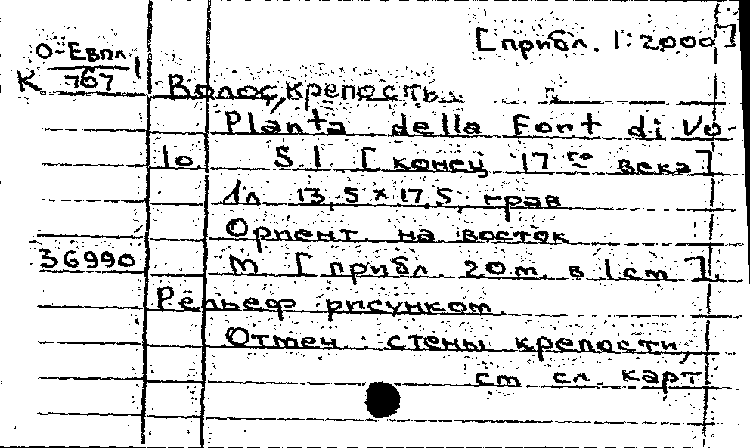 [прибл. 1:2000]
О-Евпл 1
К 767
Волос, крепость.
Planta della Font di Vo-
lo S.l. [конец 17го века]
1л. 13,5×17,5, грав
Ориент на восток
36990 М [прибл. 20 m. в 1 cm].
Рельеф рисунком.
Отмеч: стены крепости,
см сл. карт